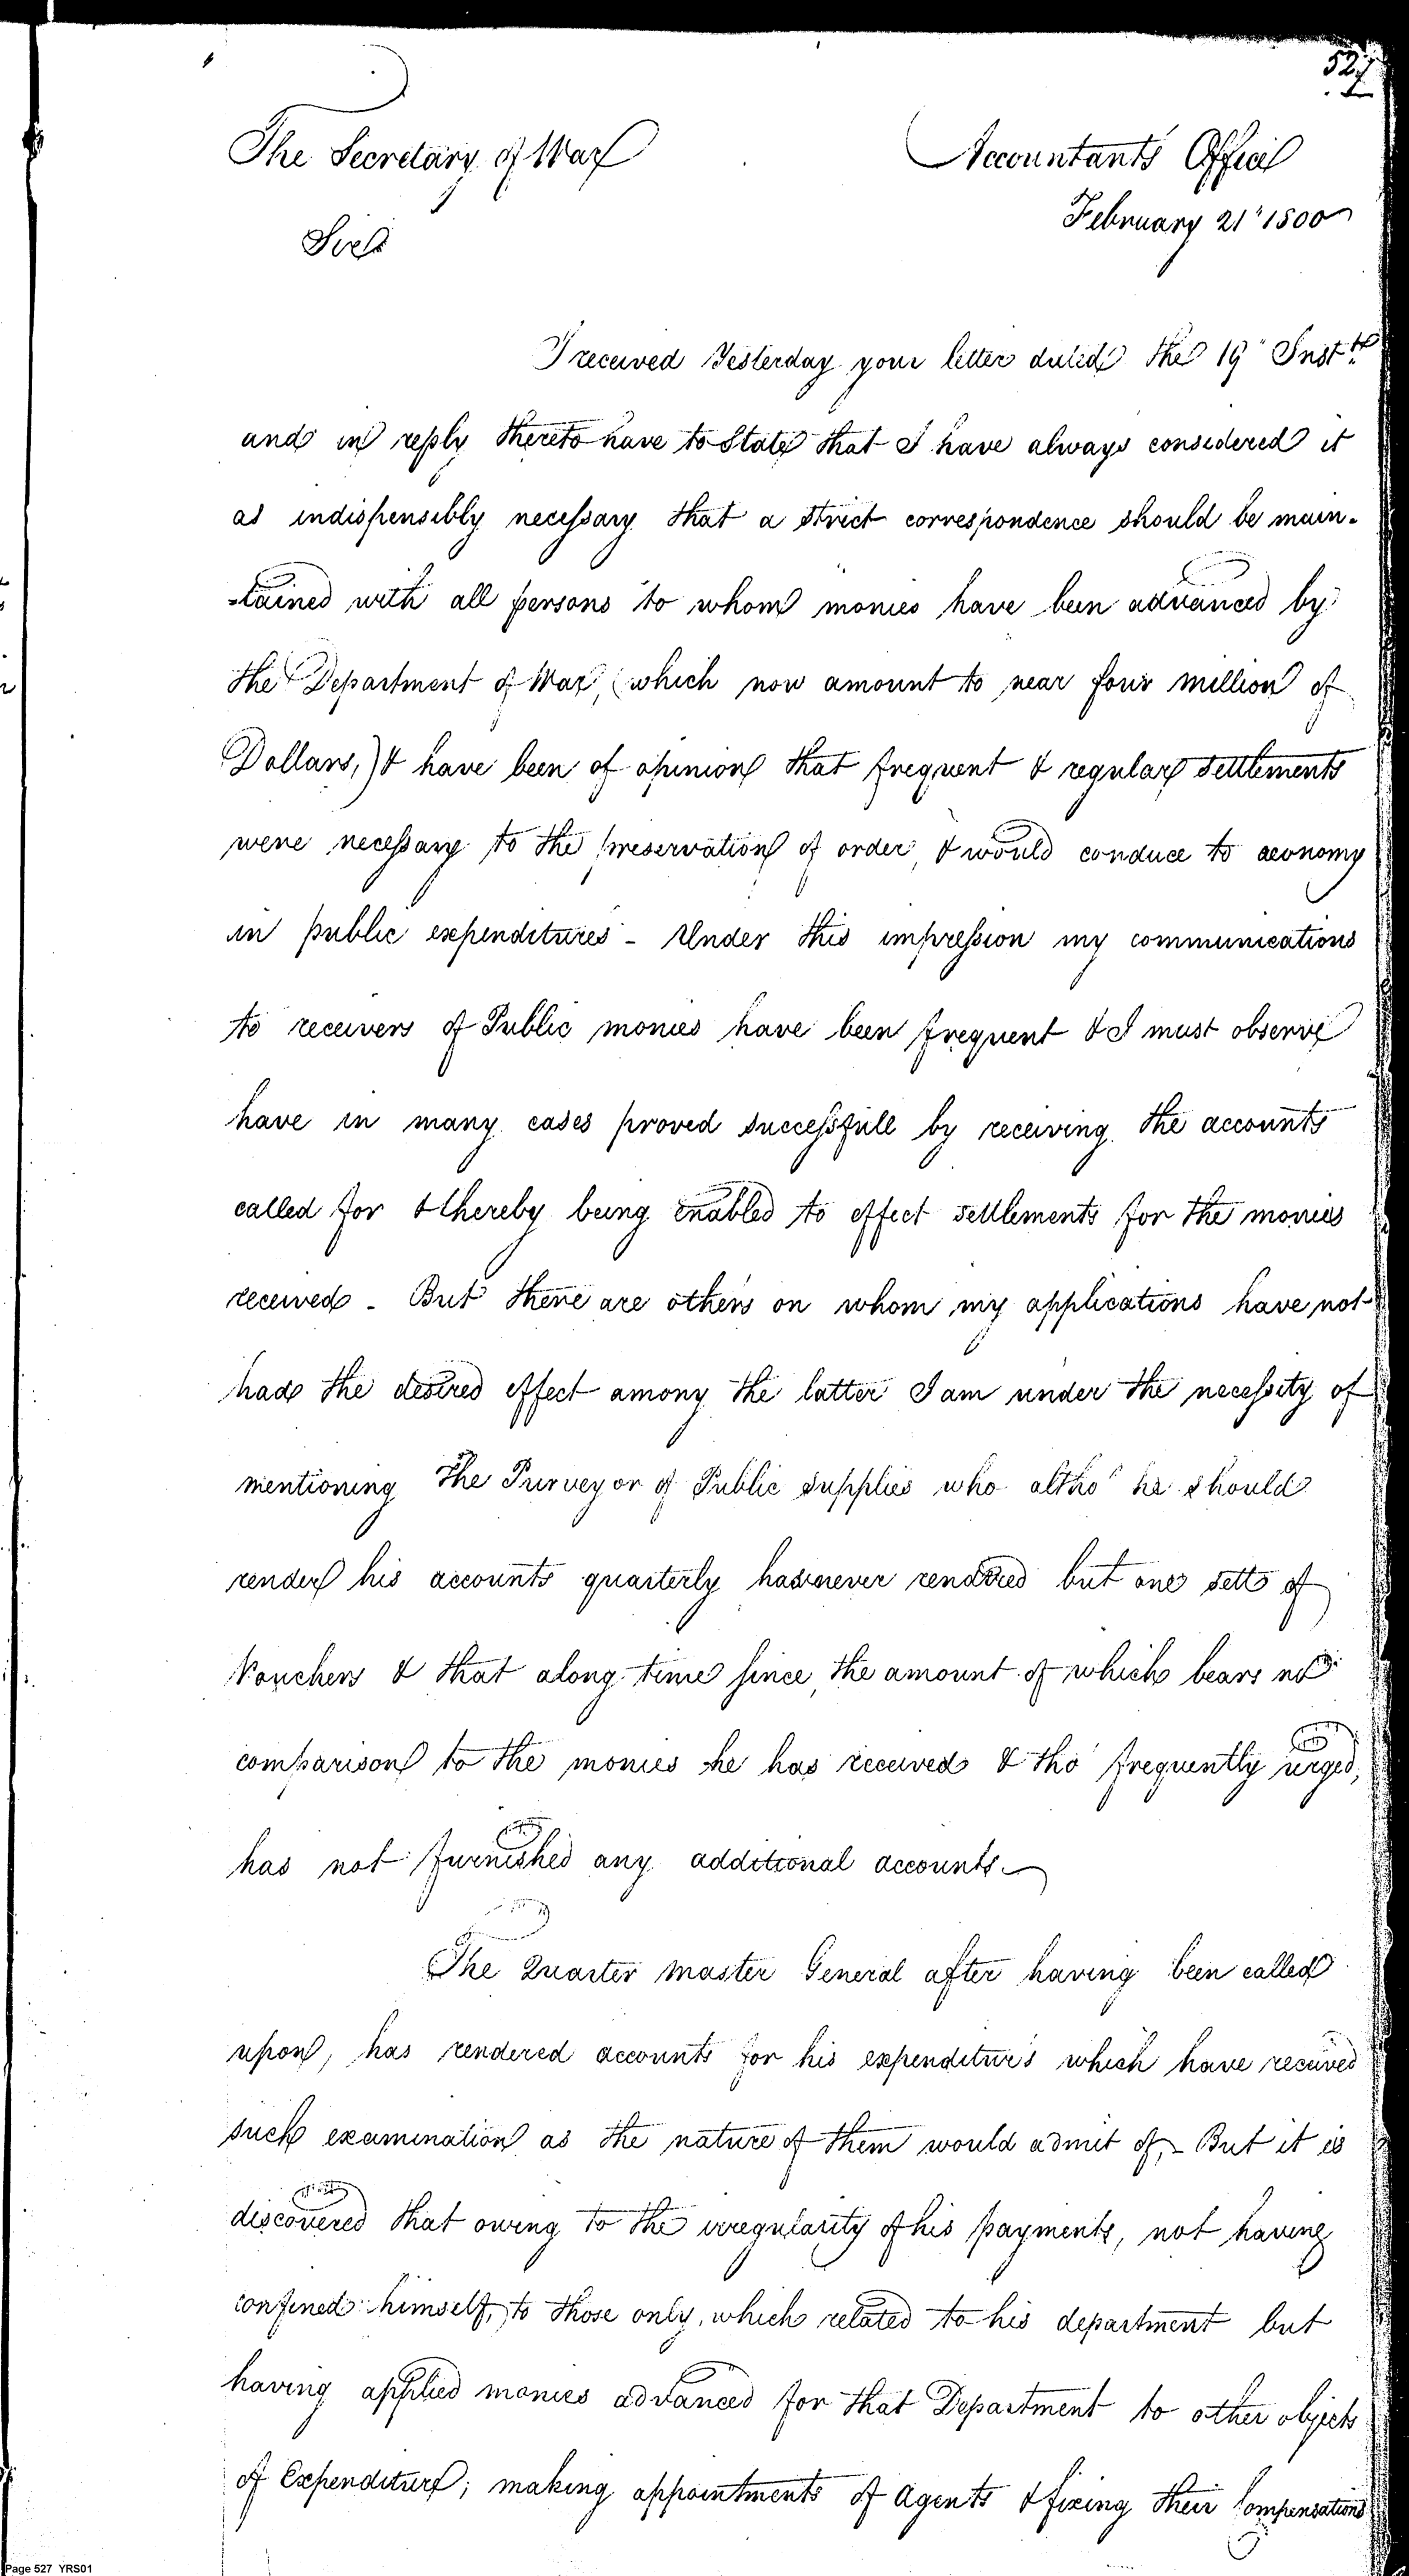 527
The Secretary of War
Accountants Office
February 21" 1800
Sir
I received Yesterday your letter dated the 19" Inst.
and in reply thereto have to State that I have always considered it
as indispensibly necessary that a strict correspondence should be main-
-tained with all persons to whom monies have been advanced by
the Department of War, (which now amount to near four million of
Dollars,) & have been of opinion that frequent & regular settlements
were necessary to the preservation of order, & would conduce to aeonomy
in public expenditures - Under this impression my communications
to receivers of Public monies have been frequent & I must observe
have in many cases proved successfull by receiving the accounts
called for & thereby being enabled to effect settlements for the monies
received - But there are others on whom my applications have not
had the desired effect among the latter I am under the necessity of
mentioning The Purveyor of Public supplies who altho' he should
render his accounts quarterly has never rendered but one setts of
Vouchers & that along time since, the amount of which bears no
comparison to the monies he has received & tho' frequently urged,
has not furnished any additional accounts.
The Quarter Master General after having been called
upon, has rendered accounts for his expenditures which have received
such examination as the nature of them would admit of,- But it is
discovered that owing to the irregularity of his payments, not having
confined himself, to those only, which related to his department but
having applied monies advanced for that Department to other objects
of Expenditure; making appointments of Agents & fixing their Compensations
Page 527 YRS01